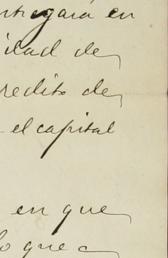 ntregará en
idad de
redito de
el capital
en que
lo que